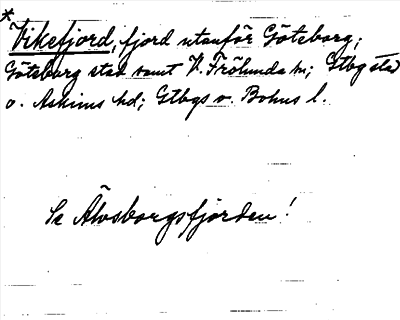 *
Vikefjord, fjord utanför Göteborg;
Göteborg stad samt V. Frölunda sn; Gtbg stad
o. Askims hd; Gtbgs o. Bohus l.
Se Älvsborgsfjorden!